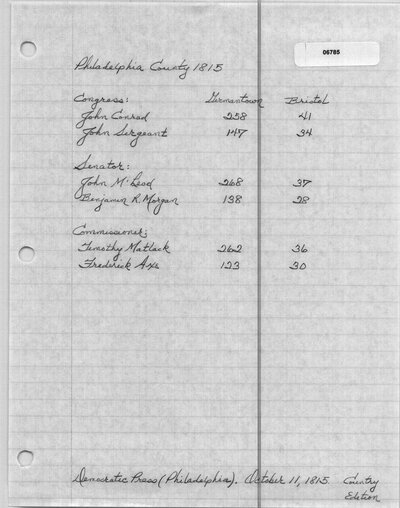 06785
Philadelphia County 1815
Congress: Germantown Bristol
John Conrad 258 41
John Sergeant 147 34
Senator:
John McLeod 268 37
Benjamin R. Morgan 138 28
Commissioner:
Timothy Matlack 262 36
Frederick Axe 123 30
Democratic Press (Philadelphia). October 11, 1815. Country
Edition